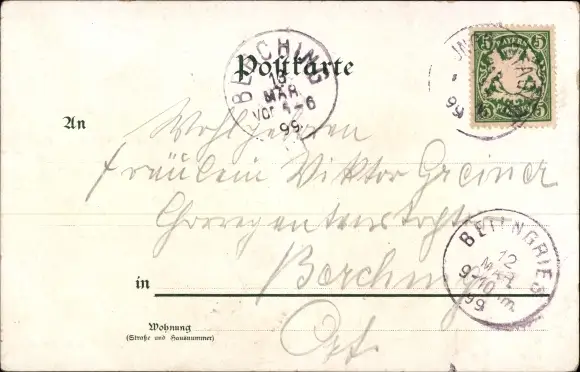 Postkarte
BERCHING
13
MÄR.
VOR. 5-6
99.
BAYERN
5 5
99
An
Wohlgeboren
Fräulein Viktor Greiner
Chorregentenstocht
in Berching
Opf.
BEILNGRIES
12
MÄR.
9-10 Vm.
99
Wohnung
(Straße und Hausnummer)